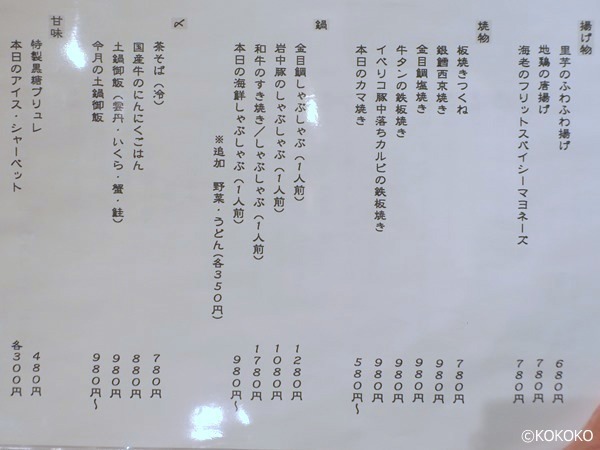 揚げ物
里芋のふわふわ揚げ 680円
地鶏の唐揚げ 780円
海老のフリットスパイシーマヨネーズ 780円
焼物
板焼きつくね 780円
銀鱈西京焼き 980円
金目鯛塩焼き 980円
牛タンの鉄板焼き 980円
イベリコ豚中落ちカルビの鉄板焼き 980円
本日のカマ焼き 580円〜
鍋
金目鯛しゃぶしゃぶ(1人前) 1280円
岩中豚のしゃぶしゃぶ(1人前) 1080円
和牛のすき焼き/しゃぶしゃぶ(1人前) 1780円
本日の海鮮しゃぶしゃぶ(1人前) 980円〜
※追加 野菜・うどん(各350円)
〆
茶そば(冷) 780円
国産牛のにんにくごはん 880円
土鍋御飯(雲丹・いくら・蟹・鮭) 980円
今月の土鍋御飯 980円〜
甘味
特製黒糖ブリュレ 480円
本日のアイス・シャーベット 各300円
©KOKOKO